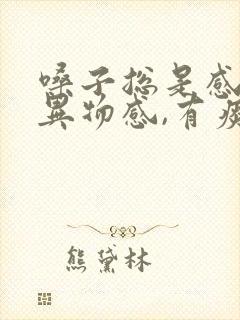 嗓子总是感
异物感,有痰
熊黛林